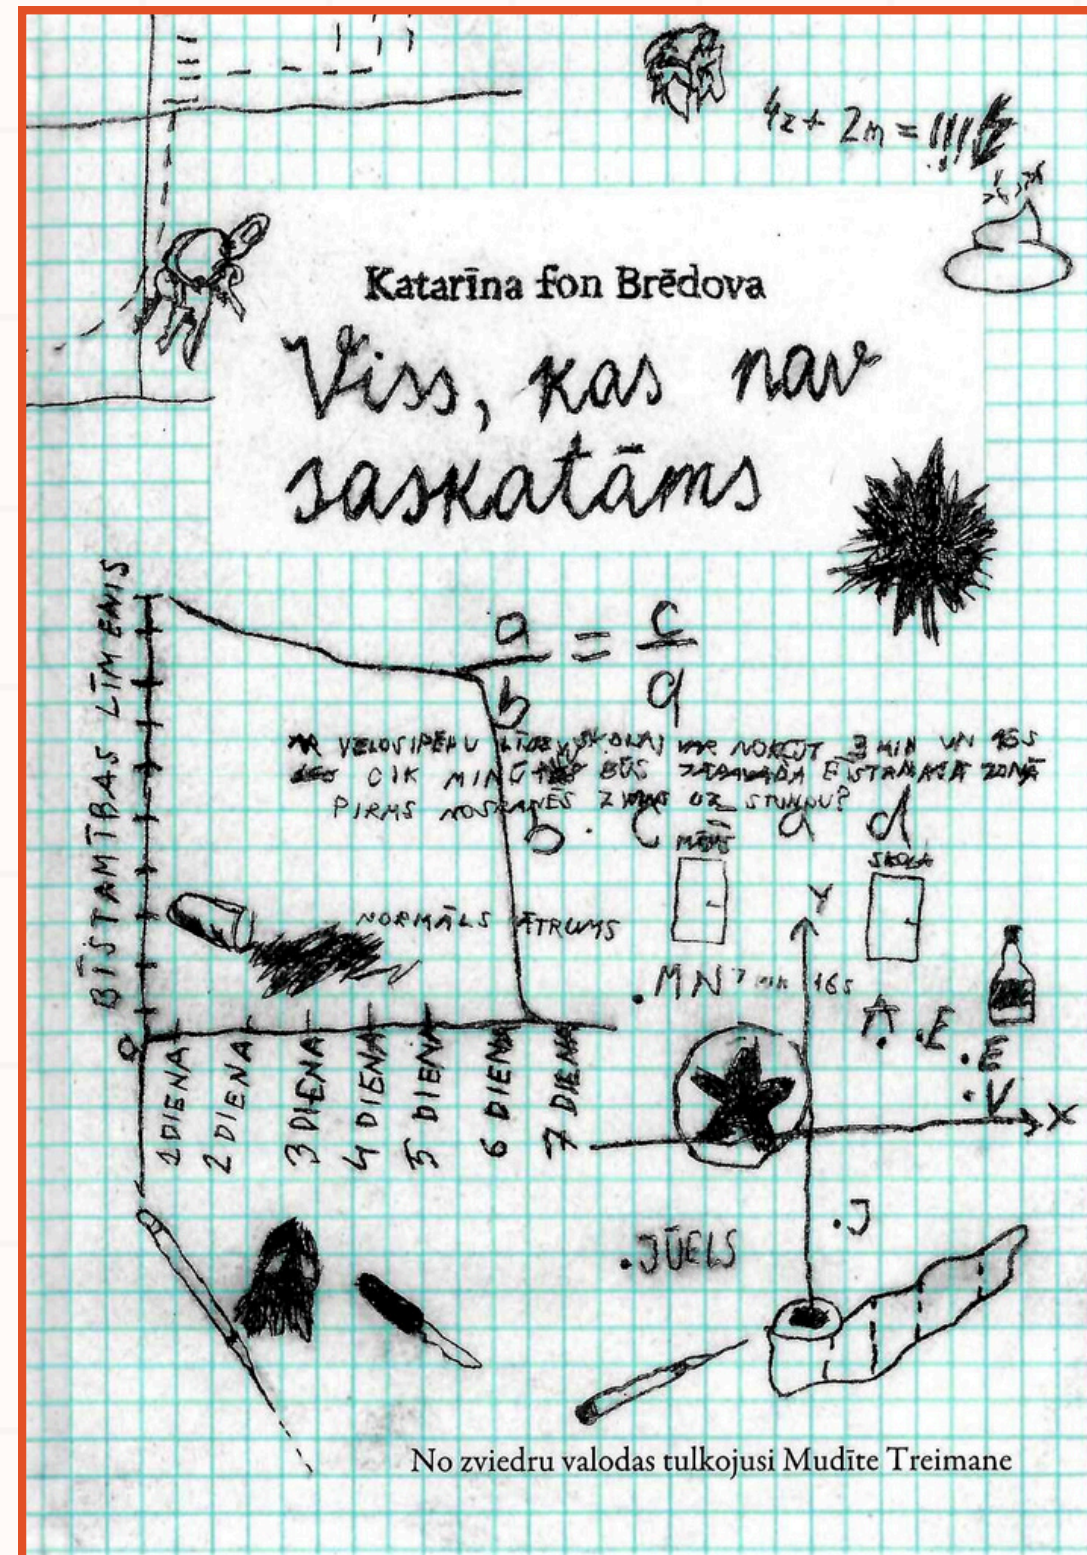 4z + 2m = !!!
Katarīna fon Brēdova
Viss, kas nav
saskatāms
BĪSTAMĪBAS LĪMENIS
a/b = c/d
AR VELOSIPĒDU LĪDZ SKOLAI VAR NOKĻŪT 3 MIN UN 16S
CIK MIN BŪS ZONĀ
PIRMS UZ STUNDU?
b · c a d
MĀJAS
SKOLA
NORMĀLS ĀTRUMS
Y
. MN 7 min 16s
A . E
. E
. V
X
0
1 DIENA
2 DIENA
3 DIENA
4 DIENA
5 DIENA
6 DIENA
7 DIENA
. J
. JŪELS
No zviedru valodas tulkojusi Mudīte Treimane